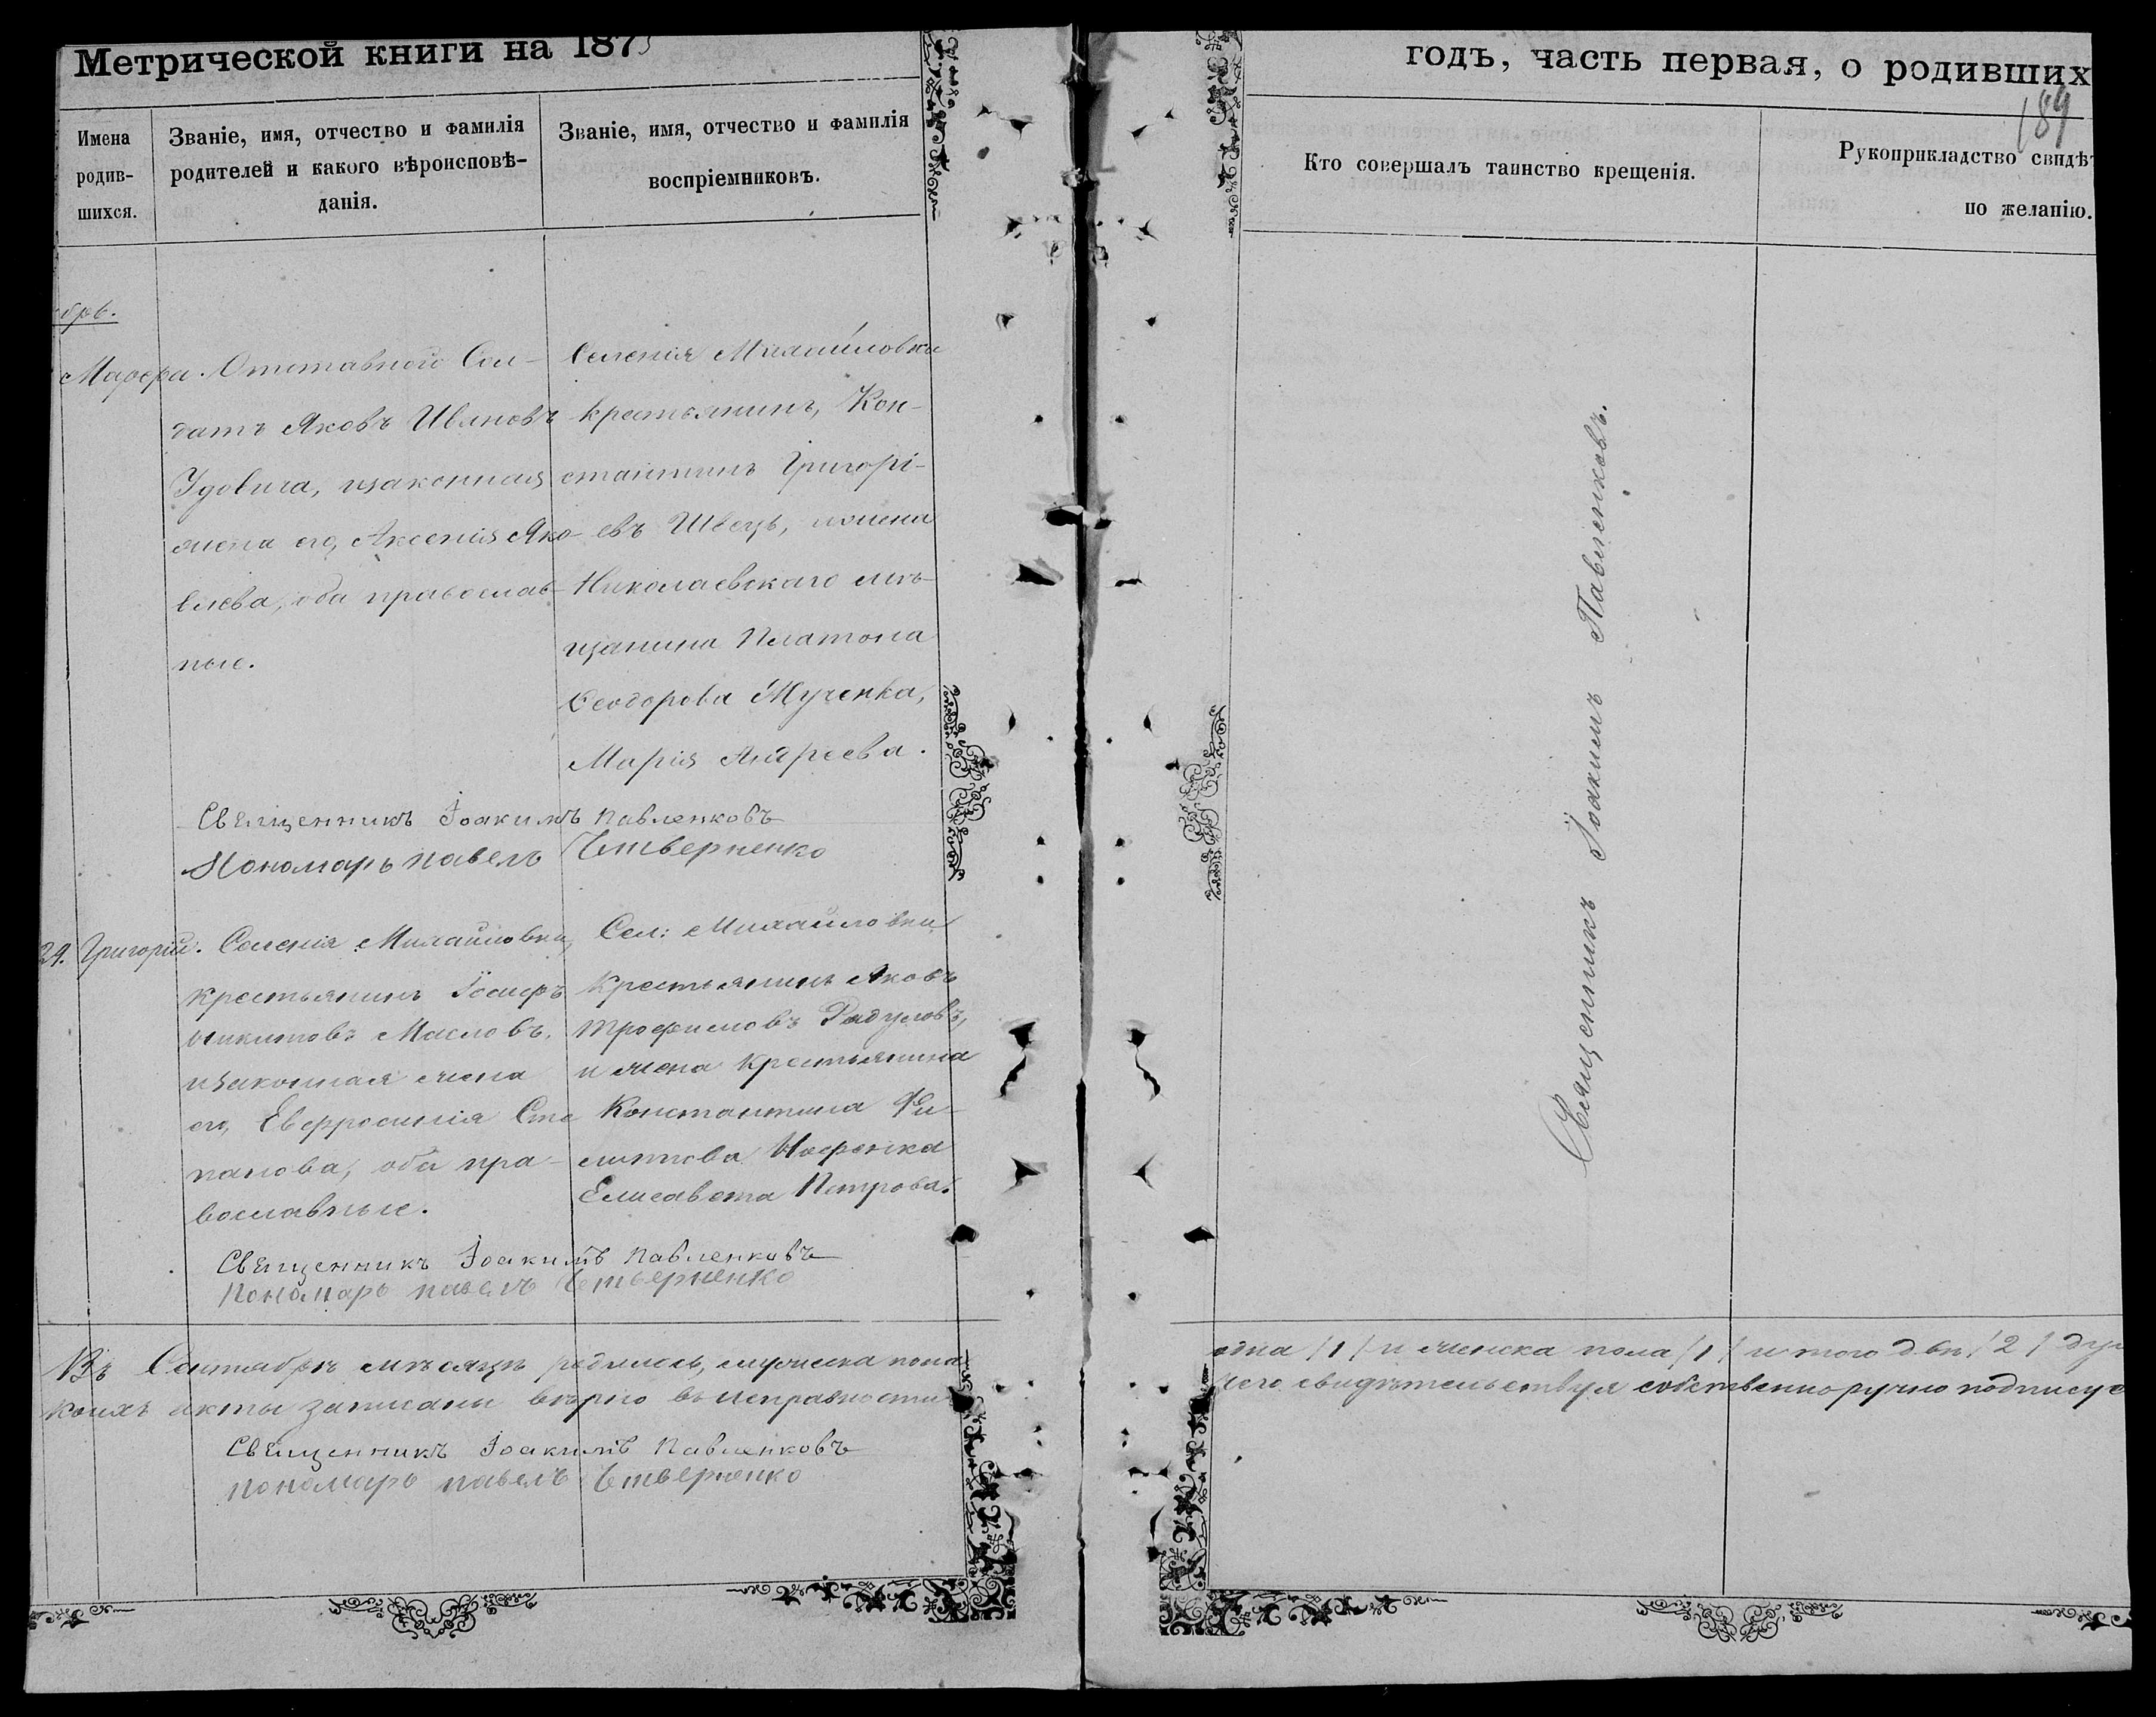 Метрической книги на 187
годъ, часть первая, о родивших
189
Имена родив-шихся.
Званіе, имя, отчество и фамилія родителей и какого вѣроисповѣ-данія.
Званіе, имя, отчество и фамилія воспріемниковъ.
Кто совершалъ таинство крещенія.
Рукоприкладство свидѣт
по желанію.
брь.
Марфа.
Отставной Сол-
датъ Яковъ Ивановъ
Удовича, изаконная
жена его, Аксенія Яко-
влева, оба православ-
ные.
Селенія Михайловки
крестьянинъ, Кон-
стантинъ Григорі-
евъ Швецъ, ижена
Николаевскаго мѣ-
щанина Платона
Феодорова Жученка,
Марія Андреева.
Священникъ Іоакимъ Павленковъ
Пономарь Павелъ Четверненко
24. Григорій.
Селенія Михайловки,
крестьянинъ Іосифъ
Никитовъ Масловъ,
изаконная жена
его, Евфросинія Сте
панова, оба пра-
вославные.
Сел: Михайловки
Крестьянинъ Яковъ
Трофимовъ Радуловъ,
и жена Крестьянина
Константина Фи-
липпова Носенка
Елисавета Петрова.
Священникъ Іоакимъ Павленковъ
Пономарь Павелъ Четверненко
Священникъ Іоакимъ Павленковъ.
Въ Сентябрѣ мѣсяцѣ родилось, мужеска пола одна /1/ и женска пола /1/ итого двѣ /2/ ду
коихъ акты записаны вѣрно въ исправности чего свидѣтельствуя собственноручно подпису
Священникъ Іоакимъ Павленковъ
Пономарь Павелъ Четверненко